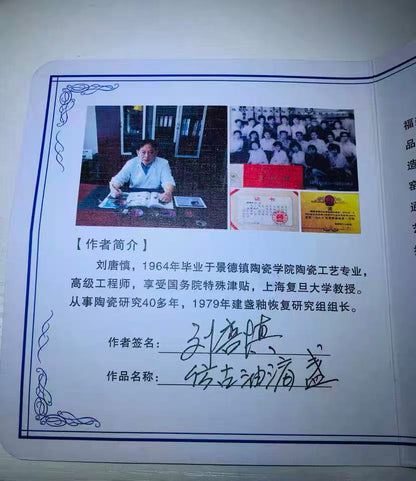 证书
【作者简介】
刘唐慎，1964年毕业于景德镇陶瓷学院陶瓷工艺专业，
高级工程师，享受国务院特殊津贴，上海复旦大学教授。
从事陶瓷研究40多年，1979年建盏釉恢复研究组组长。
作者签名：刘唐慎
作品名称：仿古油滴盏
福
品
造